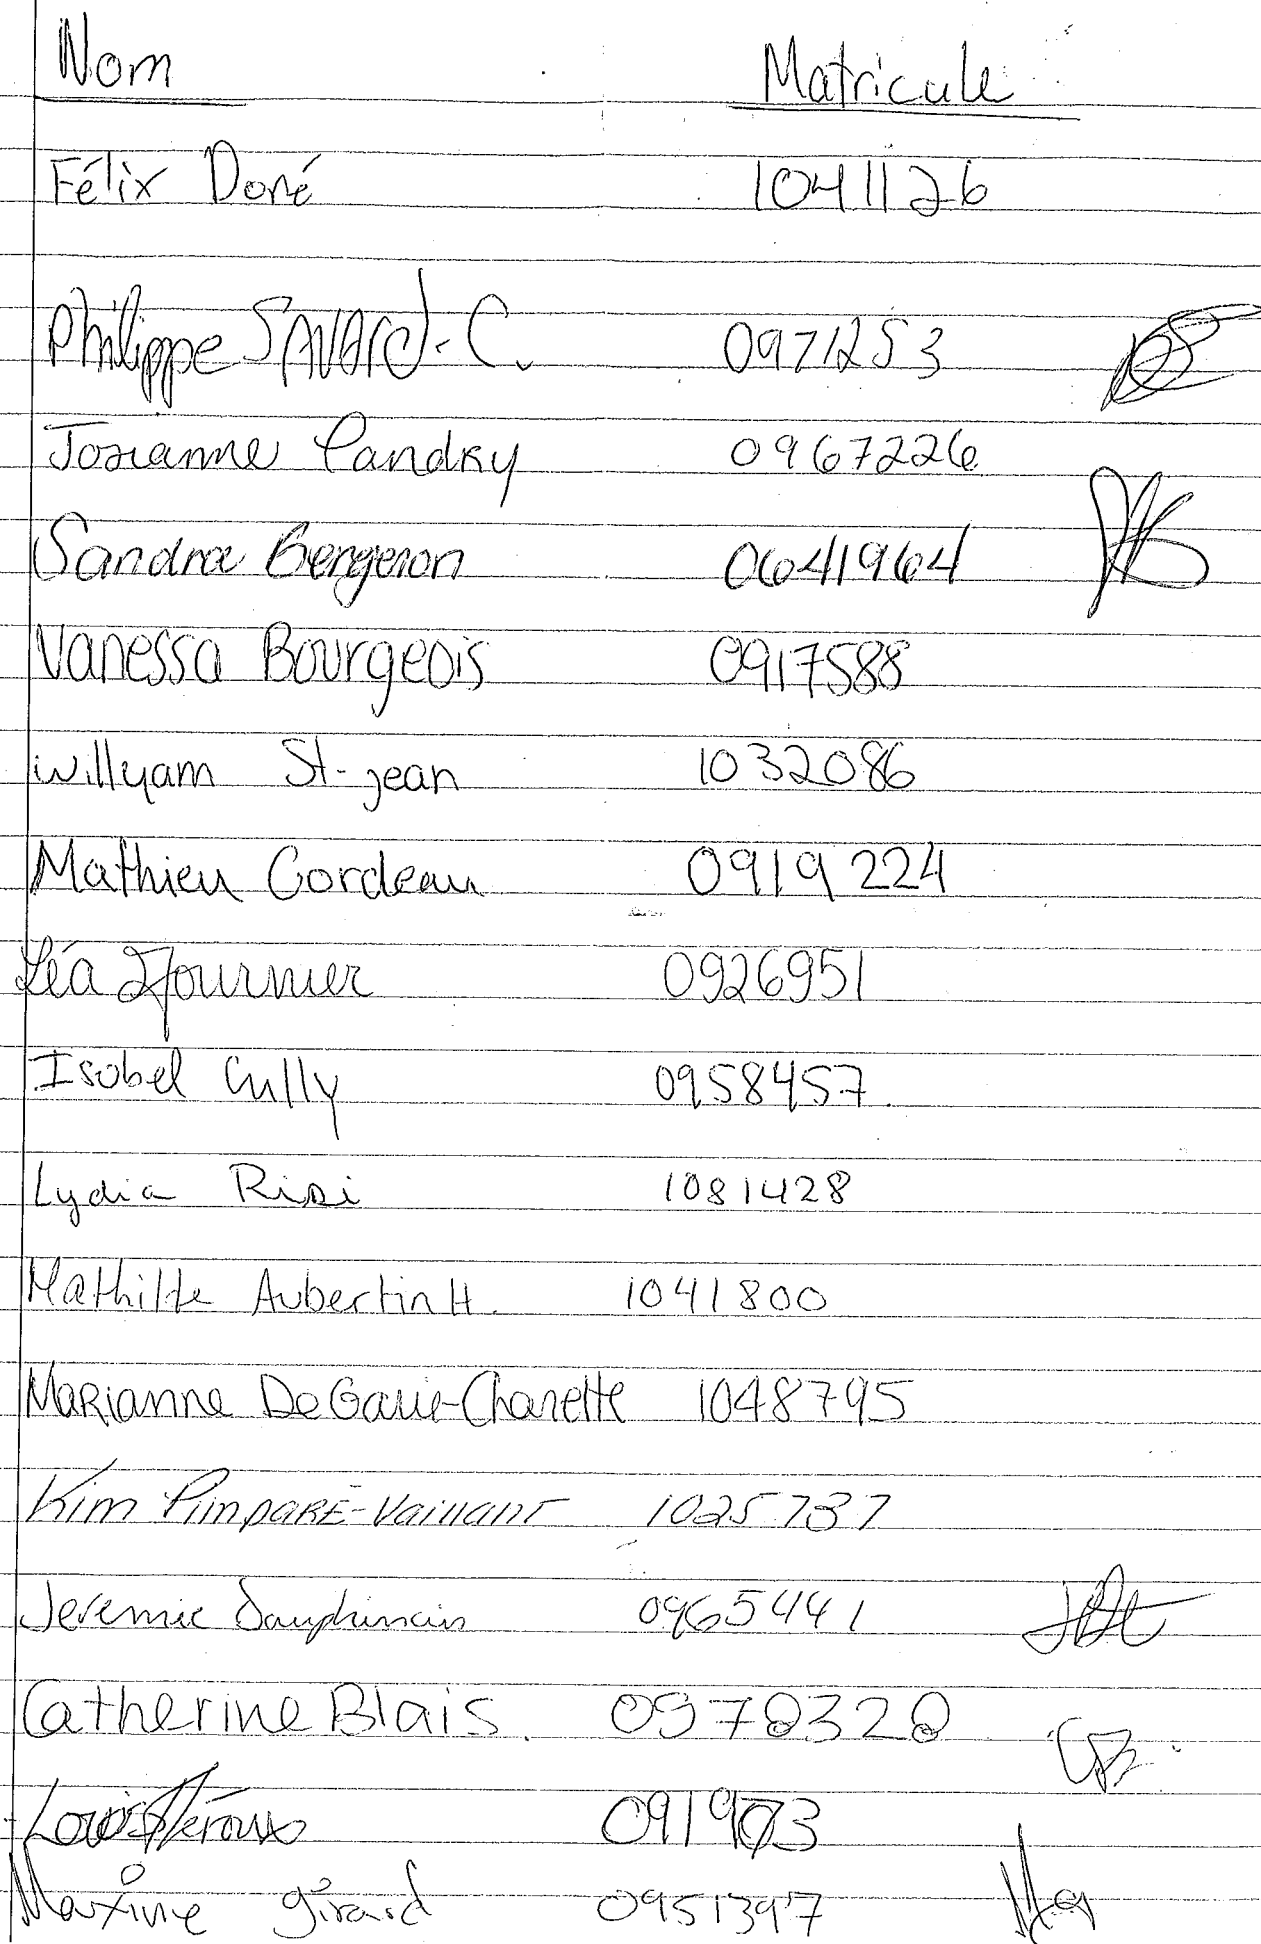 Nom Matricule
Félix Doré 1041126
Philippe SAVARd-C. 0971253
Josianne Landry 0967226
Sandra Bergeron 0641964
Vanessa Bourgeois 0917588
Willyam St-jean 1032086
Mathieu Cordeau 0919224
Léa Fournier 0926951
Isobel Cully 0958457
Lydia Risi 1081428
Mathilde Aubertin H. 1041800
Marianne DeGarie-Charette 1048795
Kim Pimparé-Vaillant 1025737
Jeremie Dauphinais 0965441
Catherine Blais. 0970320
Louis Héroux
Maxime girard 0951397